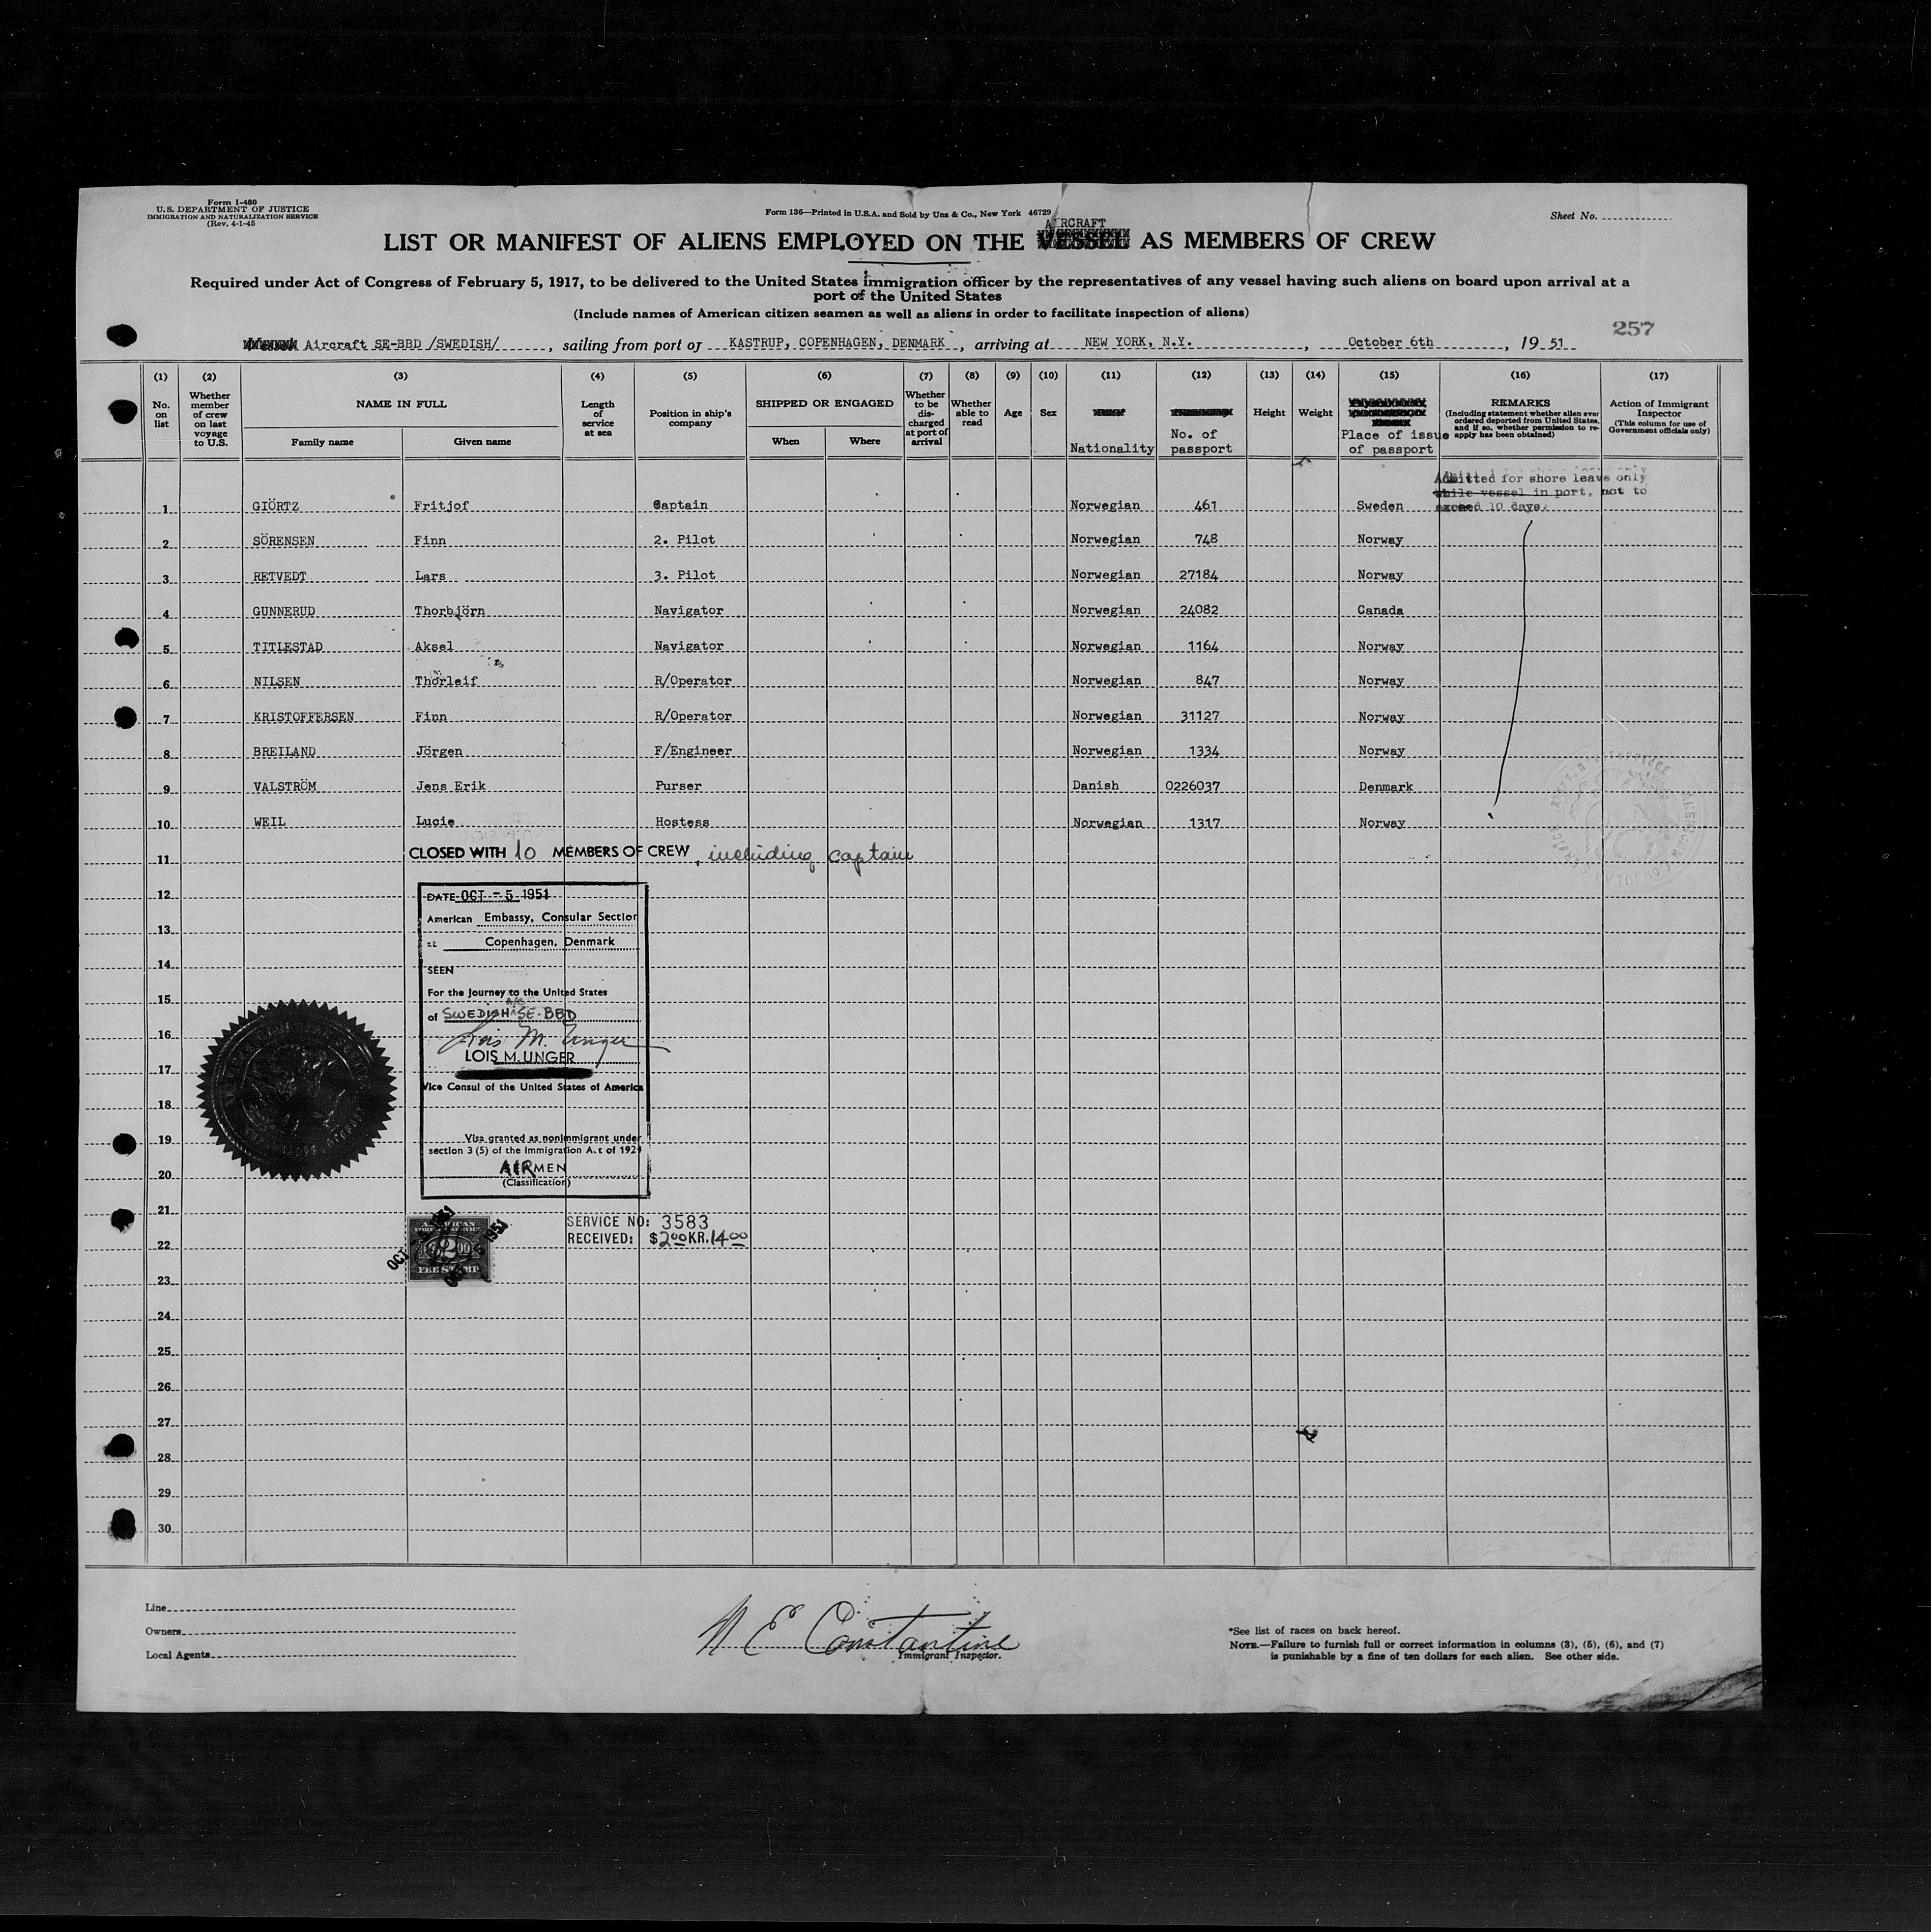 Form I-480
U.S. DEPARTMENT OF JUSTICE
IMMIGRATION AND NATURALIZATION SERVICE
(Rev. 4-1-45
Form 136—Printed in U.S.A. and Sold by Unz & Co., New York 46729
Sheet No.
AIRCRAFT
LIST OR MANIFEST OF ALIENS EMPLOYED ON THE VESSEL AS MEMBERS OF CREW
Required under Act of Congress of February 5, 1917, to be delivered to the United States immigration officer by the representatives of any vessel having such aliens on board upon arrival at a
port of the United States
(Include names of American citizen seamen as well as aliens in order to facilitate inspection of aliens)
257
Vessel Aircraft SE-BBD /SWEDISH/, sailing from port of KASTRUP, COPENHAGEN, DENMARK, arriving at NEW YORK, N.Y., October 6th, 19 51
(1) (2) (3) (4) (5) (6) (7) (8) (9) (10) (11) (12) (13) (14) (15) (16) (17)
No. on list
Whether member of crew on last voyage to U.S.
NAME IN FULL
Family name
Given name
Length of service at sea
Position in ship's company
SHIPPED OR ENGAGED
When
Where
Whether to be discharged at port of arrival
Whether able to read
Age
Sex
Nationality
No. of passport
Height
Weight
Place of issue of passport
REMARKS
(Including statement whether alien ever ordered deported from United States, and if so, whether permission to re-apply has been obtained)
Action of Immigrant Inspector
(This column for use of Government officials only)
Admitted for shore leave only
while vessel in port, not to
exceed 10 days.
1 GIÖRTZ Fritjof Captain Norwegian 461 Sweden
2 SÖRENSEN Finn 2. Pilot Norwegian 748 Norway
3 RETVEDT Lars 3. Pilot Norwegian 27184 Norway
4 GUNNERUD Thorbjörn Navigator Norwegian 24082 Canada
5 TITLESTAD Aksel Navigator Norwegian 1164 Norway
6 NILSEN Thorleif R/Operator Norwegian 847 Norway
7 KRISTOFFERSEN Finn R/Operator Norwegian 31127 Norway
8 BREILAND Jörgen F/Engineer Norwegian 1334 Norway
9 VALSTRÖM Jens Erik Purser Danish 0226037 Denmark
10 WEIL Lucie Hostess Norwegian 1317 Norway
11 CLOSED WITH 10 MEMBERS OF CREW, including captain
12
13
14
15
16
17
18
19
20
21
22
23
24
25
26
27
28
29
30
DATE OCT - 5 1951
American Embassy, Consular Section
at Copenhagen, Denmark
SEEN
For the Journey to the United States
of SWEDISH a/c SE-BBD
Lois M. Unger
LOIS M. UNGER
Vice Consul of the United States of America
Visa granted as nonimmigrant under
section 3 (5) of the Immigration Act of 1924
AIRMEN
(Classification)
AMERICAN
$2.00
FEE STAMP
OCT - 5 1951
SERVICE NO: 3583
RECEIVED: $2.00 KR. 14.00
Line
Owners
Local Agents
N E Constantine
Immigrant Inspector.
*See list of races on back hereof.
NOTE.—Failure to furnish full or correct information in columns (3), (5), (6), and (7)
is punishable by a fine of ten dollars for each alien. See other side.